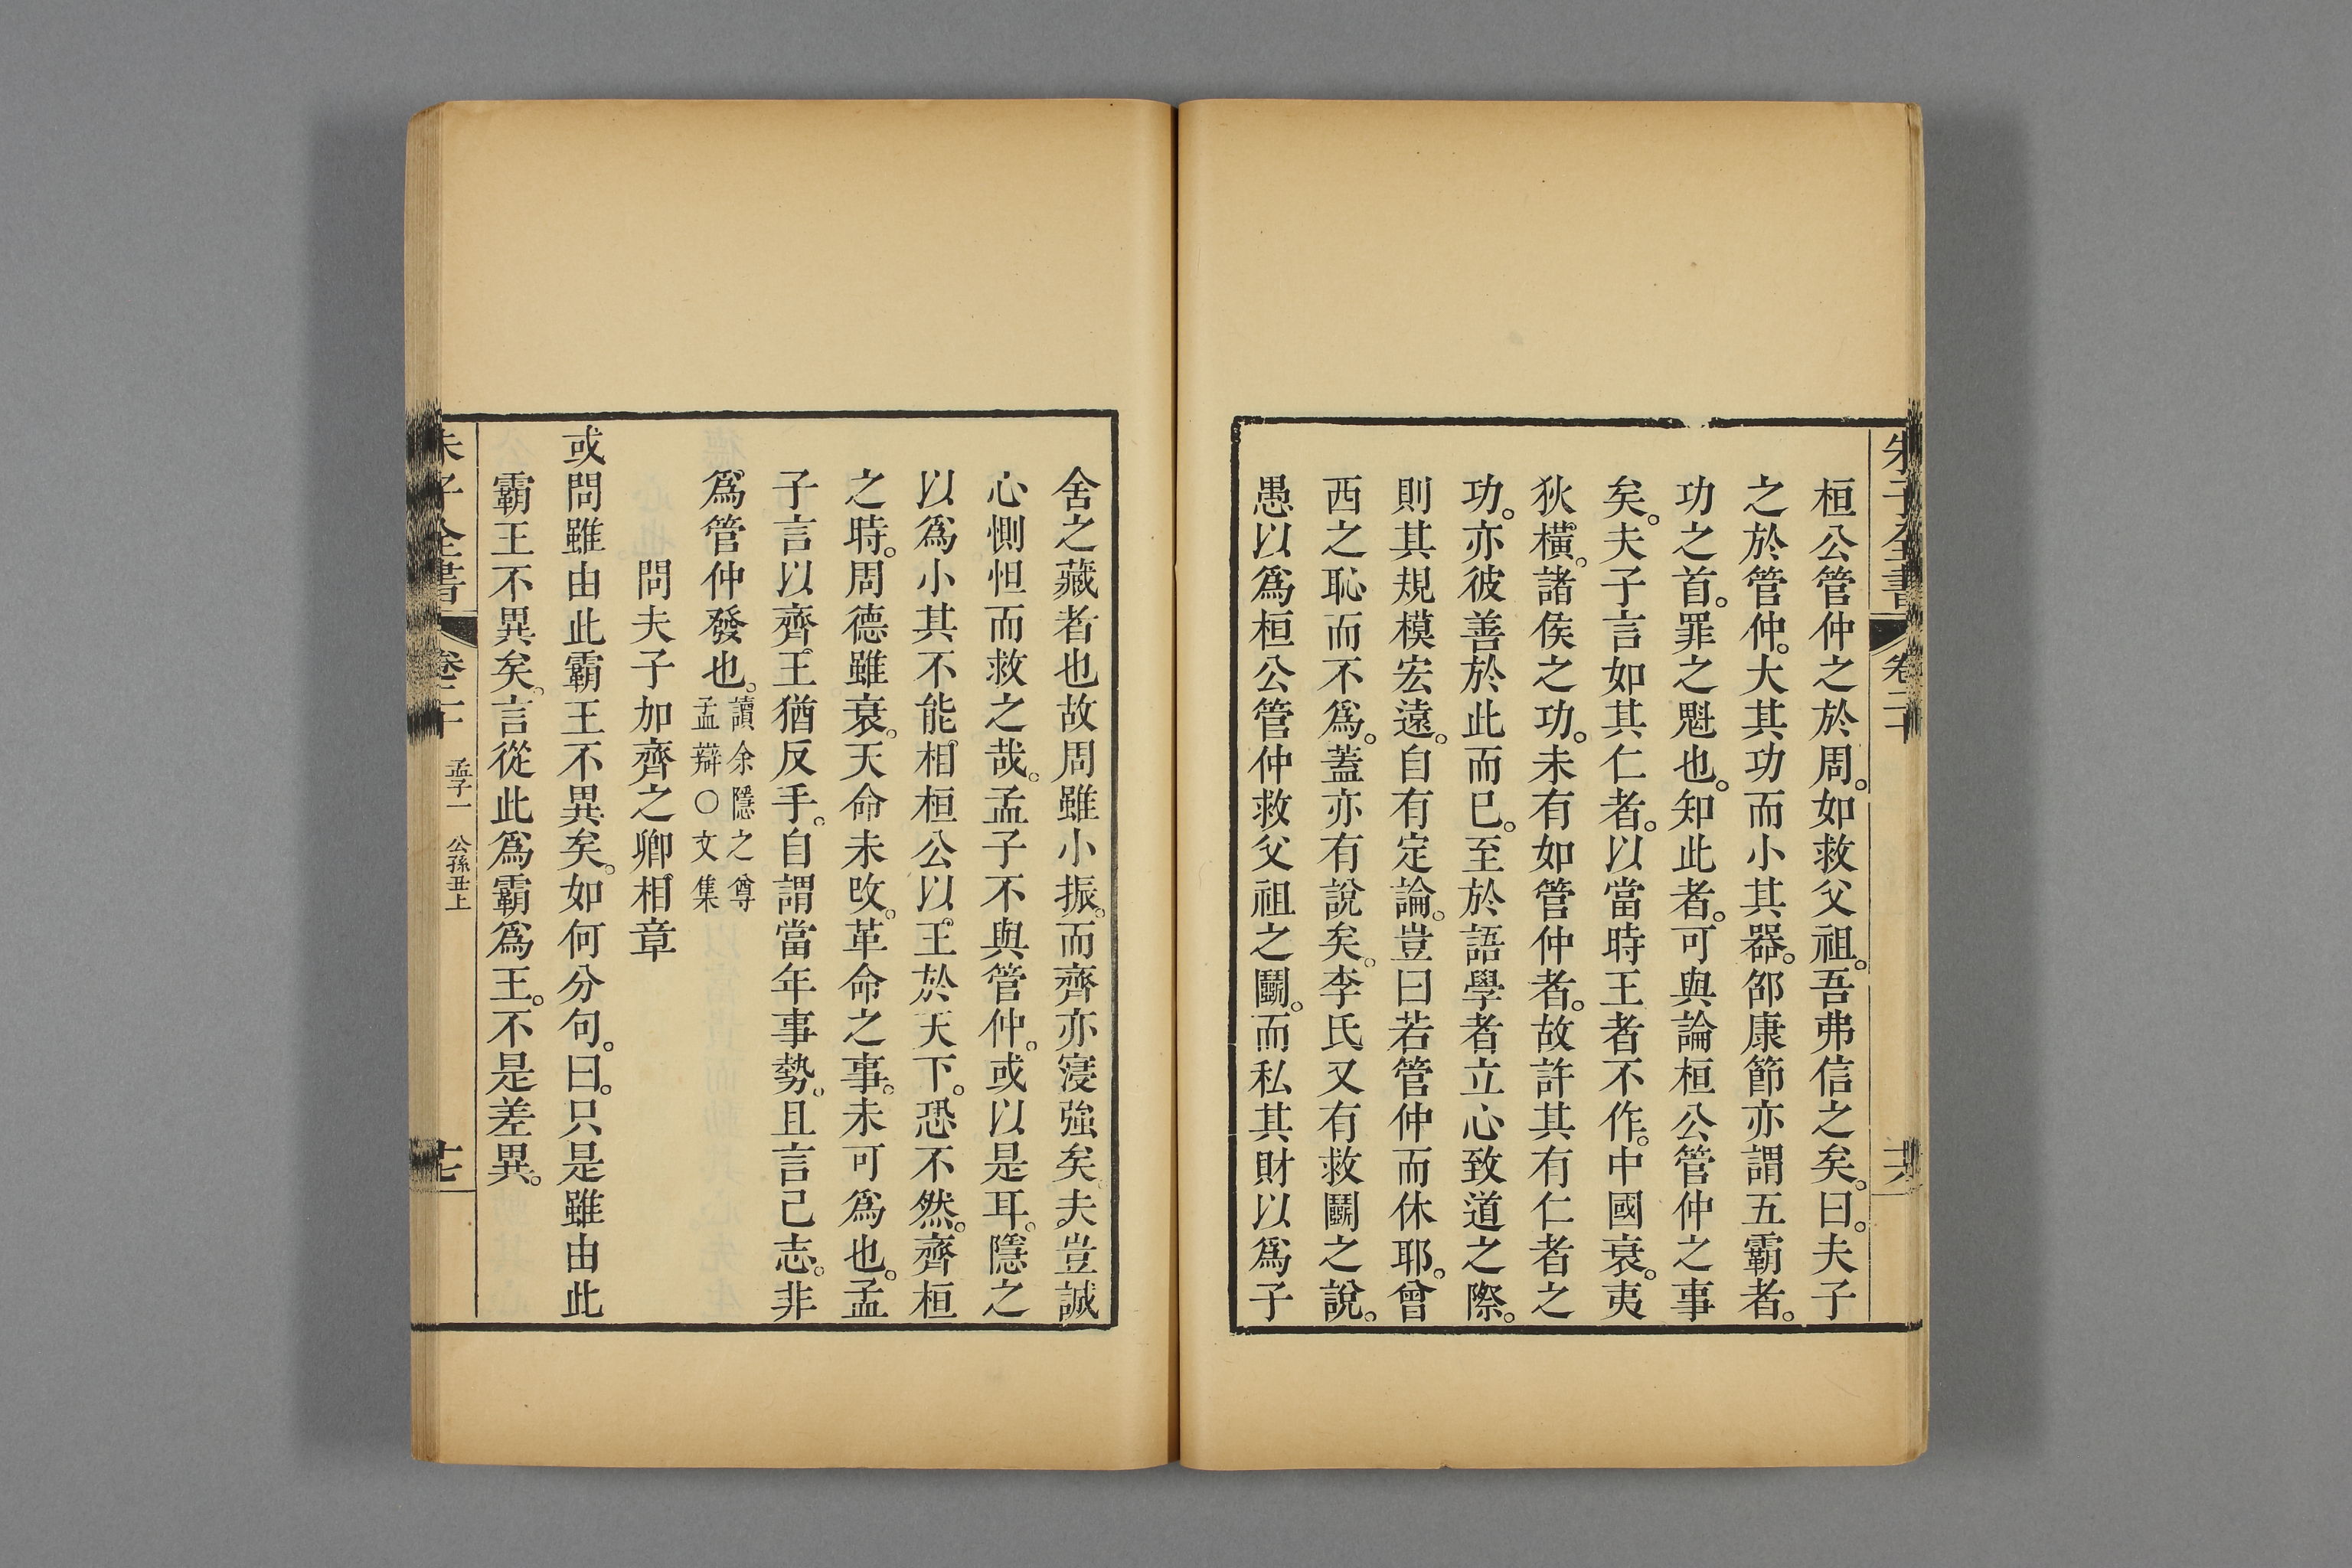 朱子全書 卷二十
桓公管仲之於周。如救父祖。吾弗信之矣。曰。夫子
之於管仲。大其功而小其器。邵康節亦謂五霸者。
功之首。罪之魁也。知此者。可與論桓公管仲之事
矣。夫子言如其仁者。以當時王者不作。中國衰。夷
狄橫。諸侯之功。未有如管仲者。故許其有仁者之
功。亦彼善於此而已。至於語學者立心致道之際。
則其規模宏遠。自有定論。豈曰若管仲而休耶。曾
西之恥而不爲。蓋亦有說矣。李氏又有救鬭之說。
愚以爲桓公管仲救父祖之鬭。而私其財以爲子
舍之藏者也故周雖小振。而齊亦寖强矣。夫豈誠
心惻怛而救之哉。孟子不與管仲。或以是耳。隱之
以爲小其不能相桓公以王於天下。恐不然。齊桓
之時。周德雖衰。天命未改。革命之事。未可爲也。孟
子言以齊王猶反手。自謂當年事勢。且言己志。非
爲管仲發也。讀余隱之尊
孟辯○文集
問夫子加齊之卿相章
或問雖由此霸王不異矣。如何分句。曰。只是雖由此
霸王不異矣。言從此爲霸爲王。不是差異。
朱子全書 卷二十 孟子一 公孫丑上